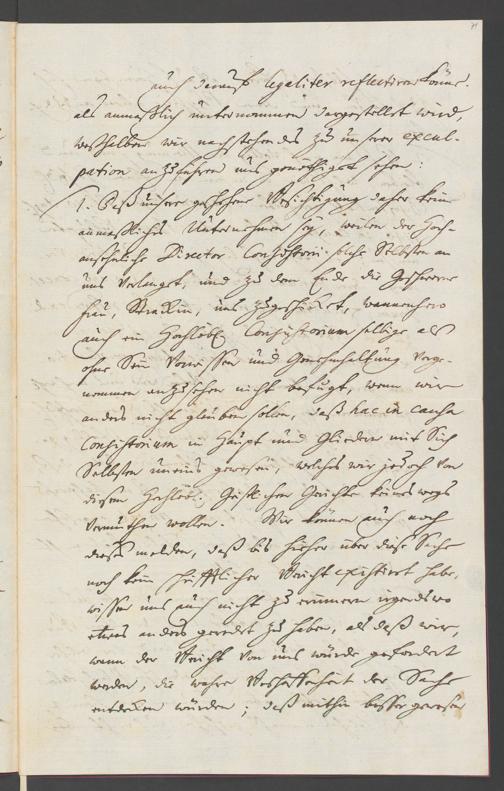 auch darauf legaliter reflectiren könne.
als anmaßlich unternommen dargestellet wird,
weßhalben wir nachstehendes zu unserer excul-
pation anzuführen uns genöthiget sehen:
1. Daß unsere geschehene Besichtigung daher kein
anmaßliches Unternehmen sey, weilen der Hoch-
ansehnliche Director Consistorii solche Selbsten an
uns verlanget, und zu dem Ende die Geschworne
Frau, uns zugeschicket, wannenhero
auch ein Hochlöbl. Consistorium selbige als
ohne Sein Vorwissen und Genehmhaltung vorge-
nommen anzusehen nicht befugt, wenn wir
anders nicht glauben sollen, daß hac in causa
Consistorium in Haupt und Gliedern mit Sich
Selbsten uneins gewesen, welches wir jedoch von
diesem Hochlöbl. Geistlichen Gerichte keineswegs
vermuthen wollen. Wir können auch noch
dieses melden, daß bis hieher über diese Sache
noch kein schrifftlicher Bericht existirt habe,
wissen uns auch nicht zu erinnern irgendswo
etwas anders geredet zu haben, als daß wir,
wann der Bericht von uns würde gefordert
werden, die wahre Beschaffenheit der Sache
entdecken würden; daß mithin besser gewesen